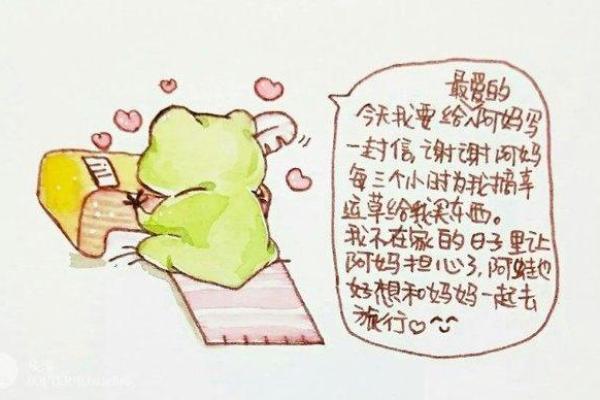 最爱的
今天我要给阿妈写
一封信,谢谢阿妈
每三个小时为我摘幸
运草给我买东西。
我不在家的日子里让
阿妈担心了,阿蛙也
好想和妈妈一起去
旅行♡